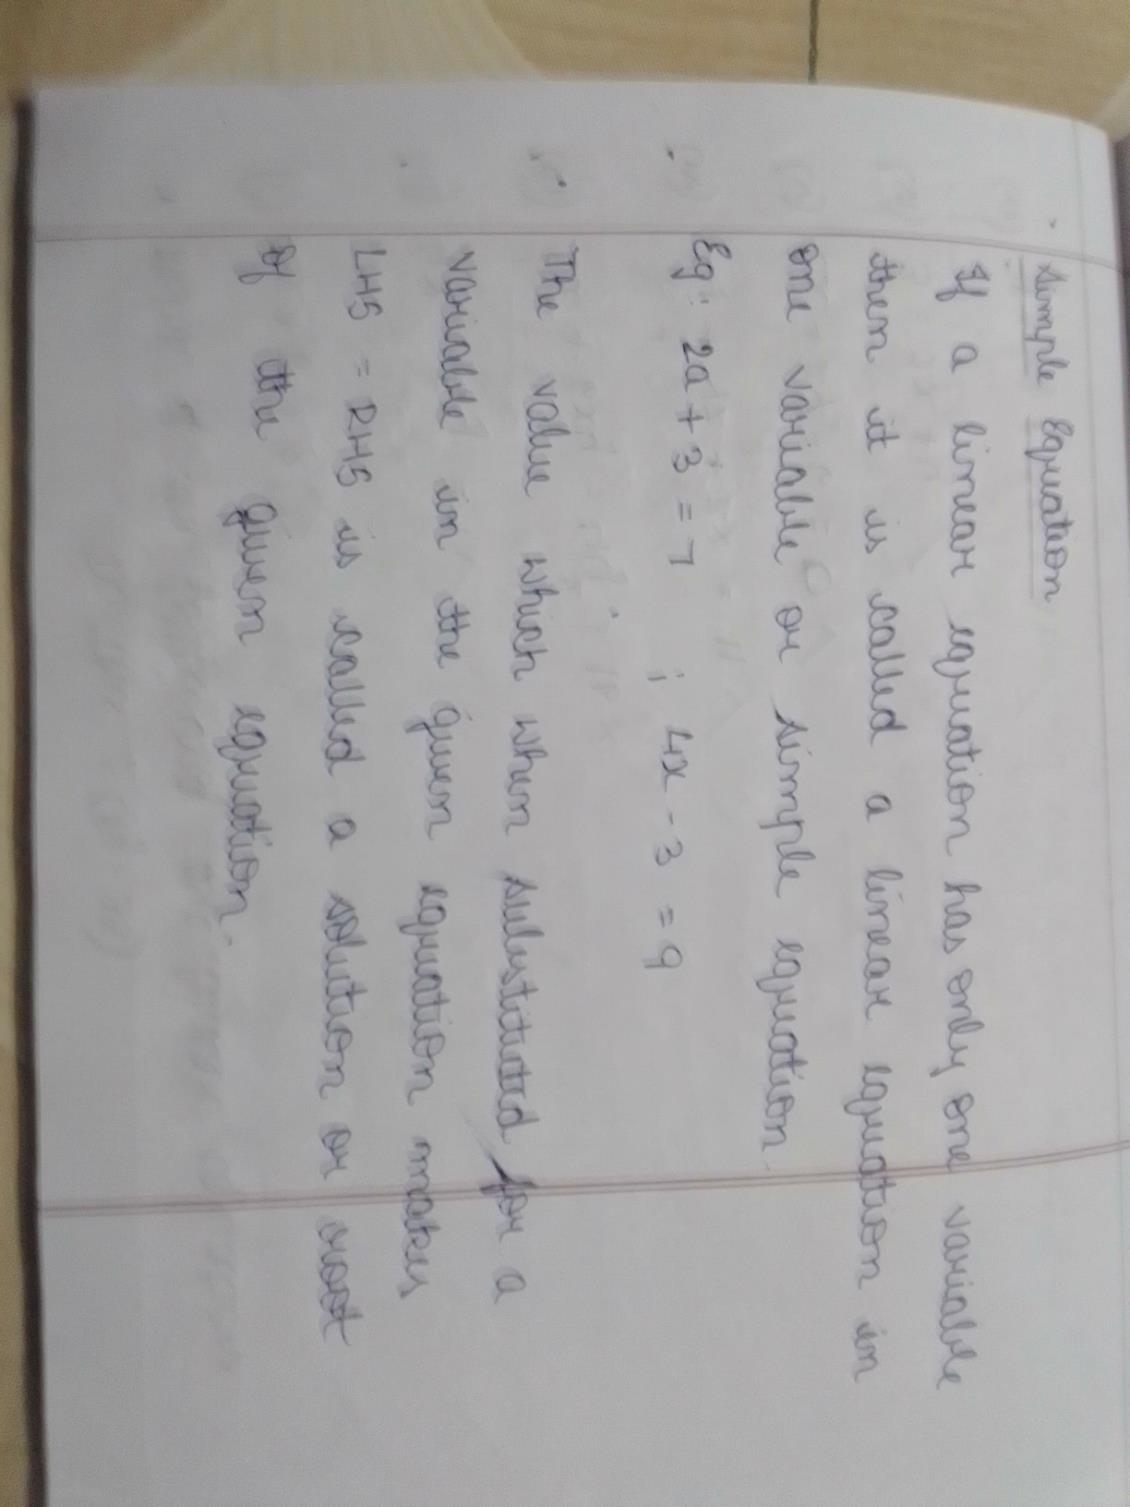 Simple Equation
If a linear equation has only one variable
then it is called a linear equation in
one variable or simple equation
Eg: 2a + 3 = 7 ; 4x - 3 = 9
The value which when substituted for a
variable in the given equation makes
LHS = RHS is called a solution or root
of the given equation.